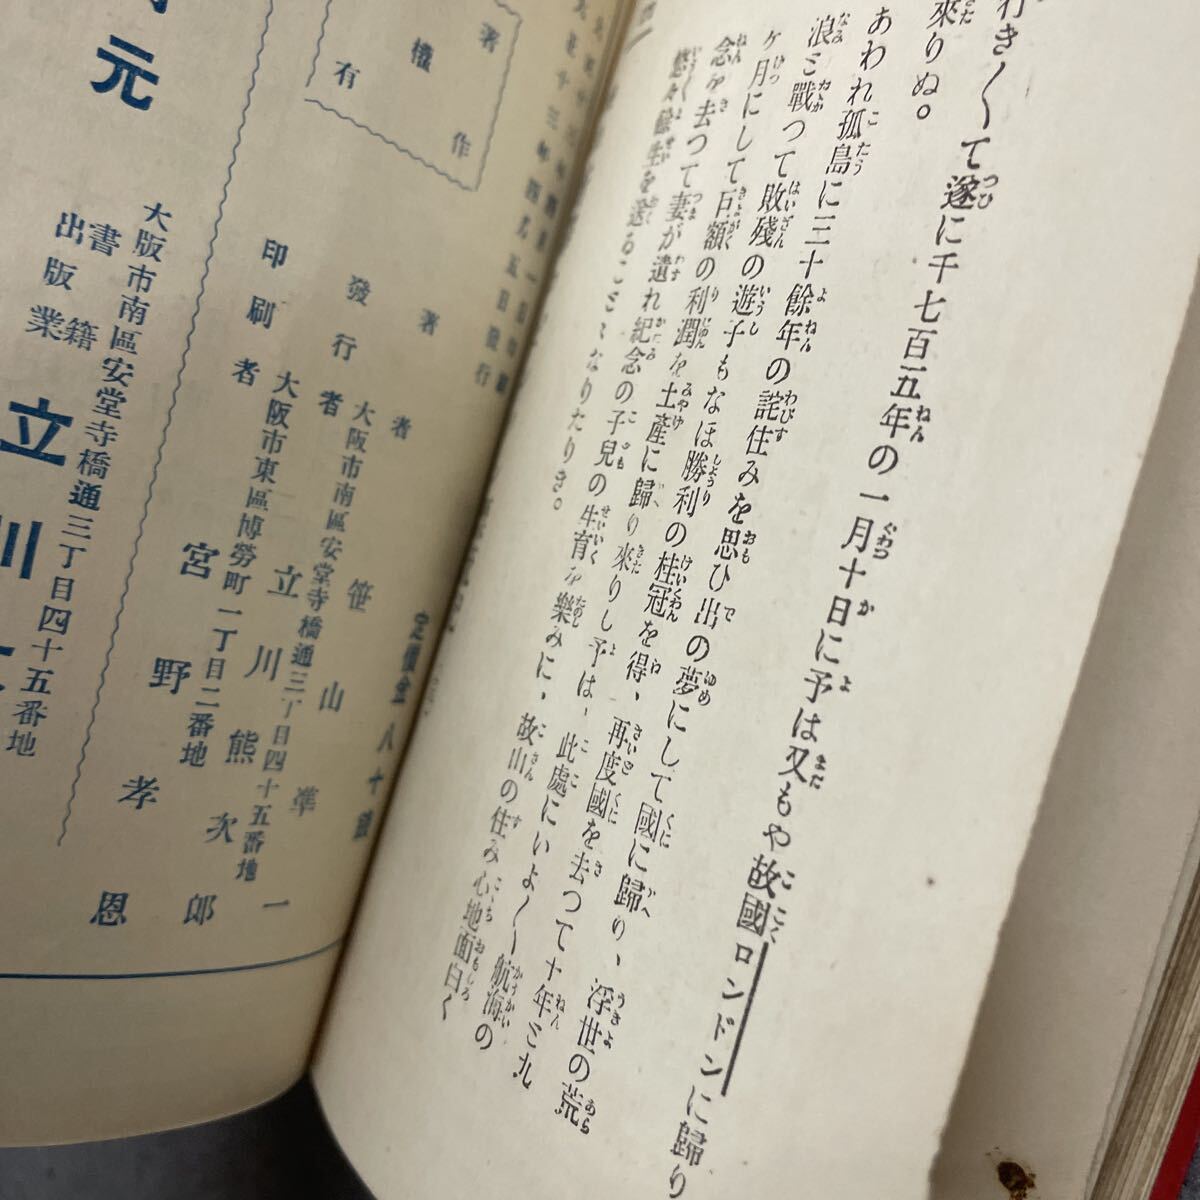 行き〱て遂に千七百五年の一月十日に予は又もや故國ロンドンに歸り
來りぬ。
あわれ孤島に三十餘年の詫住みを思ひ出の夢にして國に歸り、浮世の荒
浪と戰つて敗殘の遊子もなほ勝利の桂冠を得、再度國を去つて十年と九
ヶ月にして巨額の利潤を土産に歸り來りし予は、此處にいよ〱航海の
念を去つて妻が遺れ紀念の子兒の生育を樂みに、故山の住み心地面白く
悠々餘生を送ることゝなりたりき。
著作
權
有
定價金八十錢
著者 笹山準一
發行者 大阪市南區安堂寺橋通三丁目四十五番地
立川熊次郎
印刷者 大阪市東區博勞町一丁目二番地
宮野孝恩
大阪市南區安堂寺橋通三丁目四十五番地
書籍
出版業
元
立川